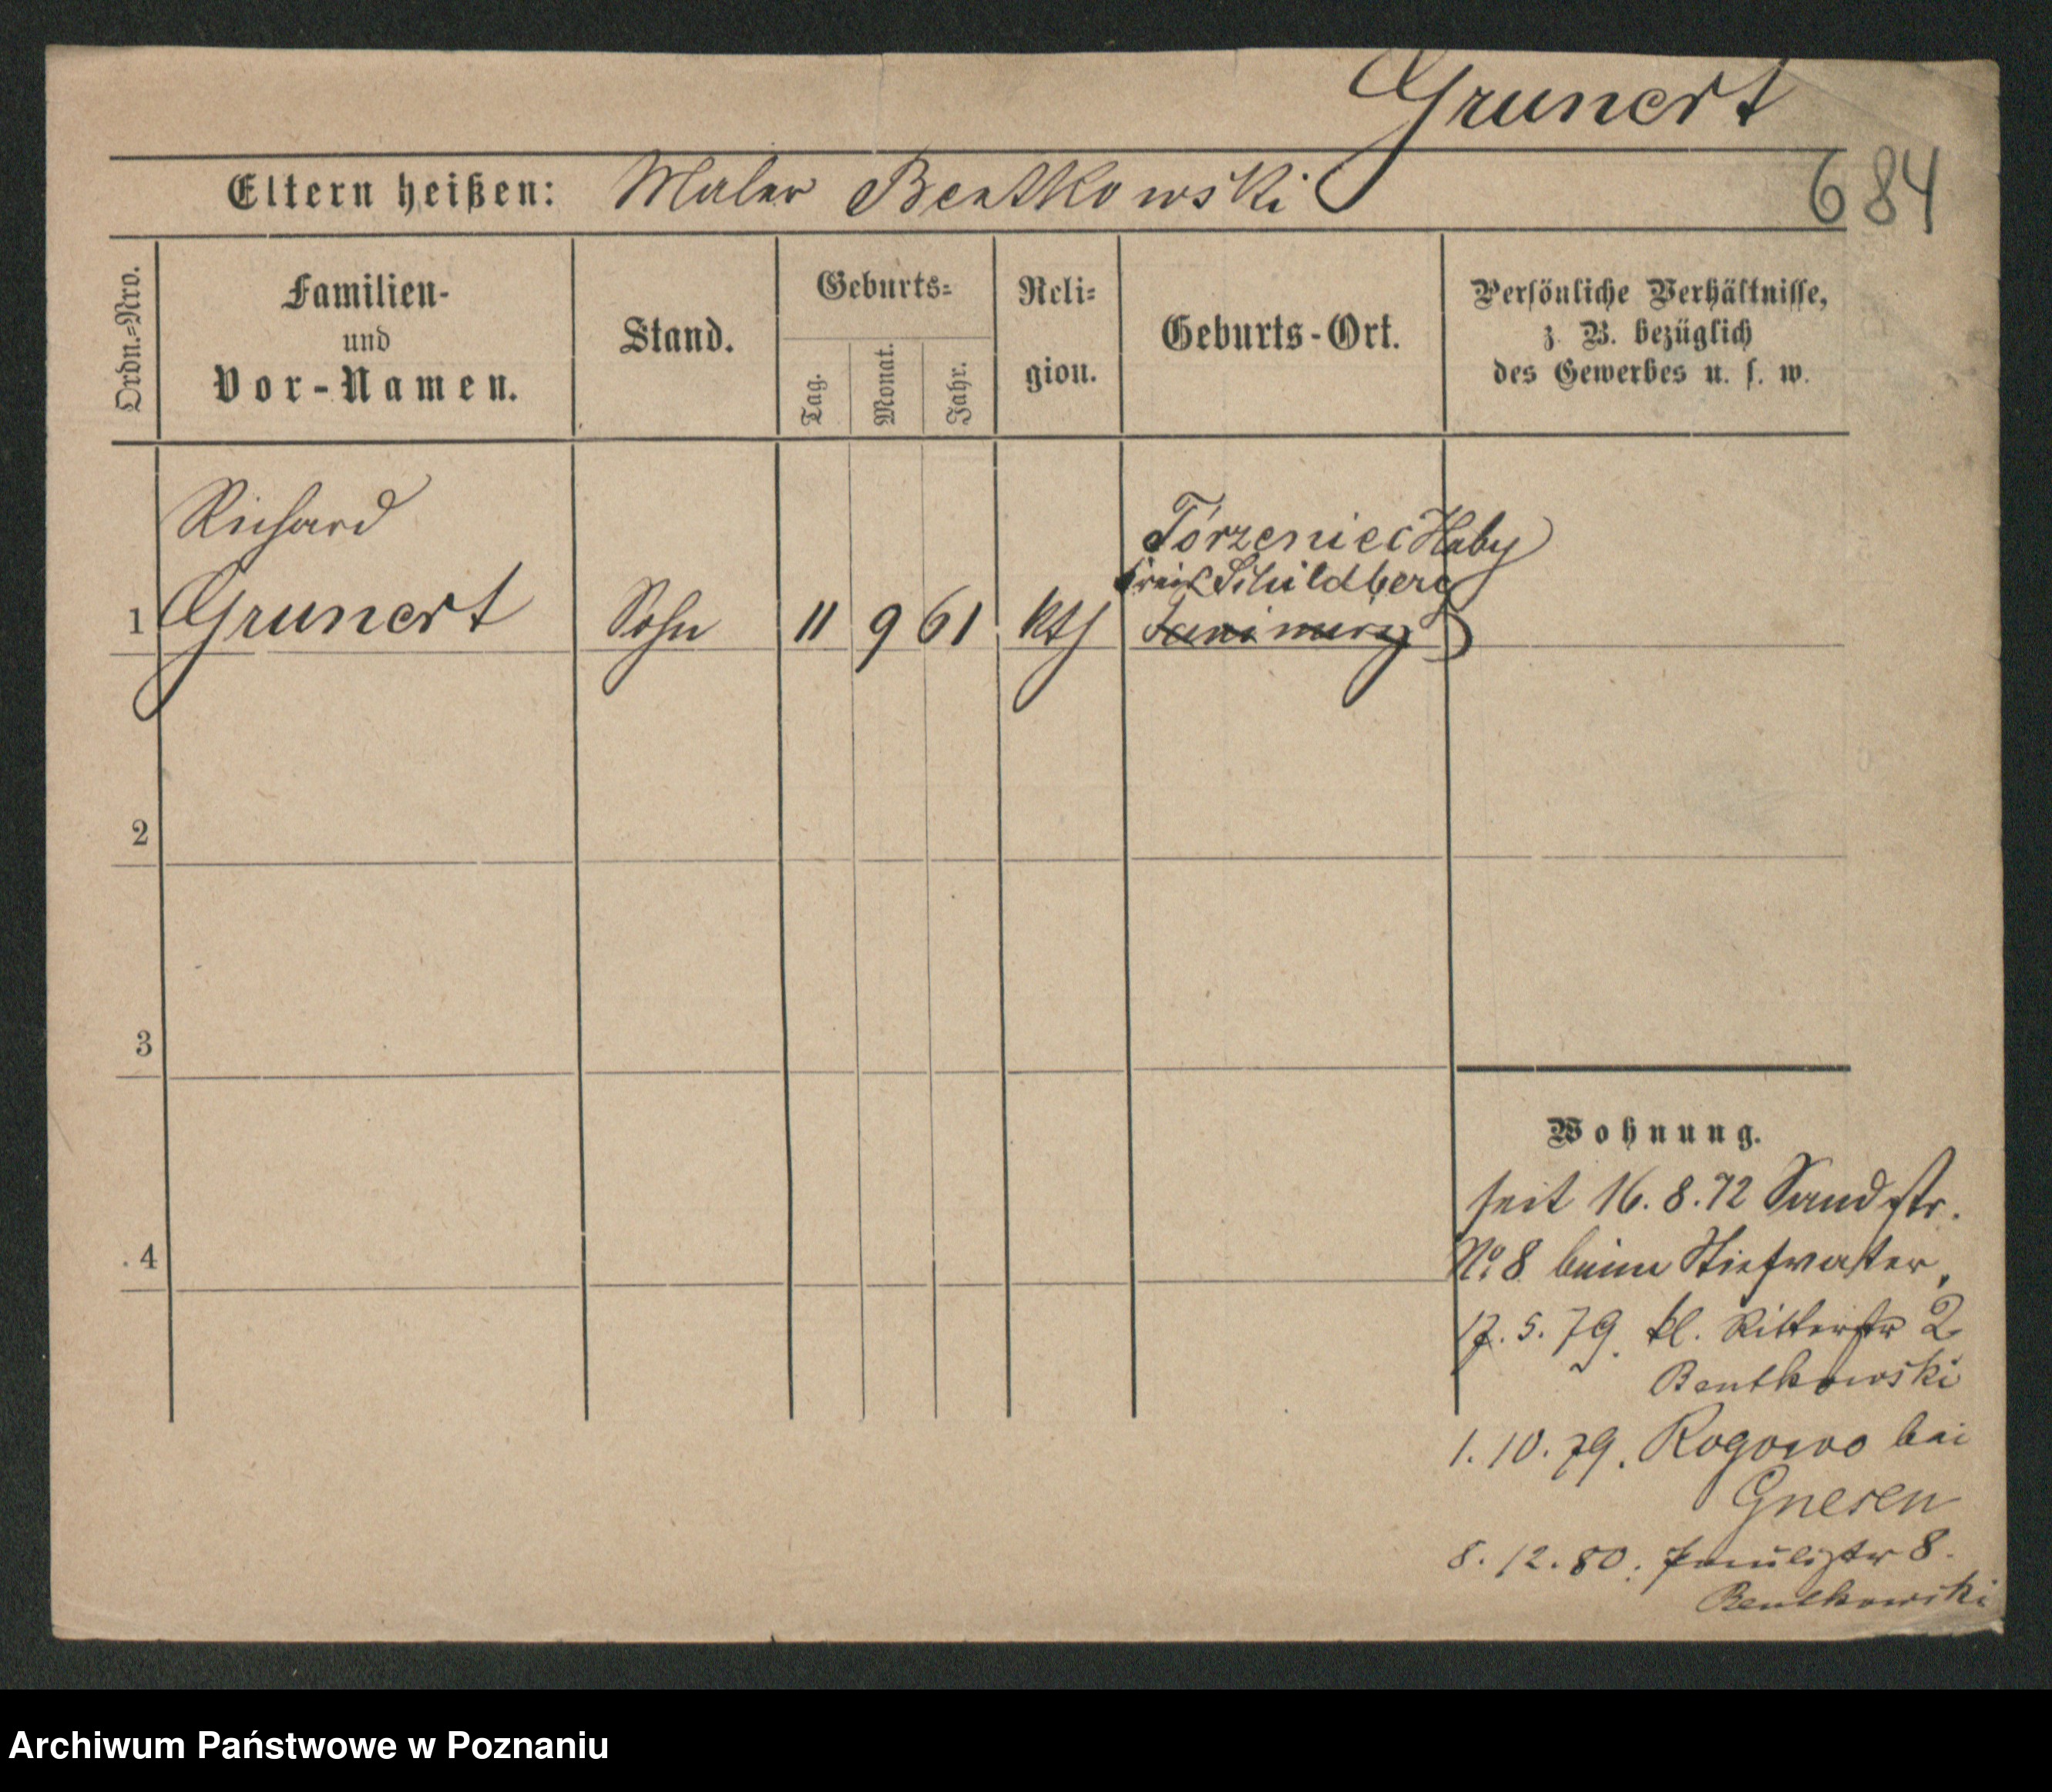 Grunert
684
Eltern heißen: Maler Bentkowski
Ordn.=Nro.
Familien-
und
Vor-Namen.
Stand.
Geburts=
Tag.
Monat.
Jahr.
Reli=
gion.
Geburts-Ort.
Persönliche Verhältnisse,
z. B. bezüglich
des Gewerbes u. s. w.
Richard
1 Grunert Sohn 11 9 61 kth
Torzeniec Haby
Kreis Schildberg
2
3
4
Wohnung.
seit 16. 8. 72 Sandstr.
No. 8 beim Stiefvater,
17. 5. 79. kl. Ritterstr 2
Bentkowski
1. 10. 79. Rogowo bei
Gnesen
8. 12. 80. 8.
Bentkowski
Archiwum Państwowe w Poznaniu